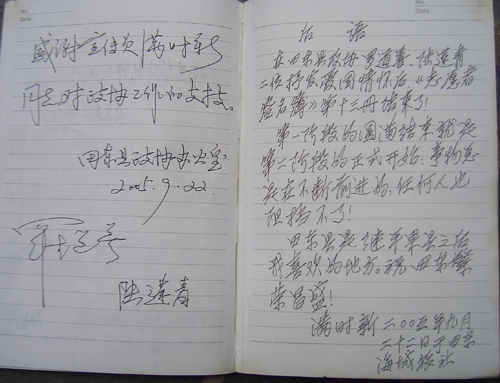 No.
Date
感谢宣传员满时新
同志对政协工作的支持。
田东县政协办公室
2005.9.22.
陆莲青
No.
Date
后语
在田东县政协罗道善、陆莲青
二位抒发爱国情怀后《志愿者
签名簿》第十三册结束了!
第一阶段的圆满结束就是
第二阶段的正式开始,事物总
是在不断前进的,任何人也
阻挡不了!
田东县是继平果县之后
我喜欢的地方。祝田东繁
荣昌盛!
满时新二00五年九月
二十二日于田东
海城旅社